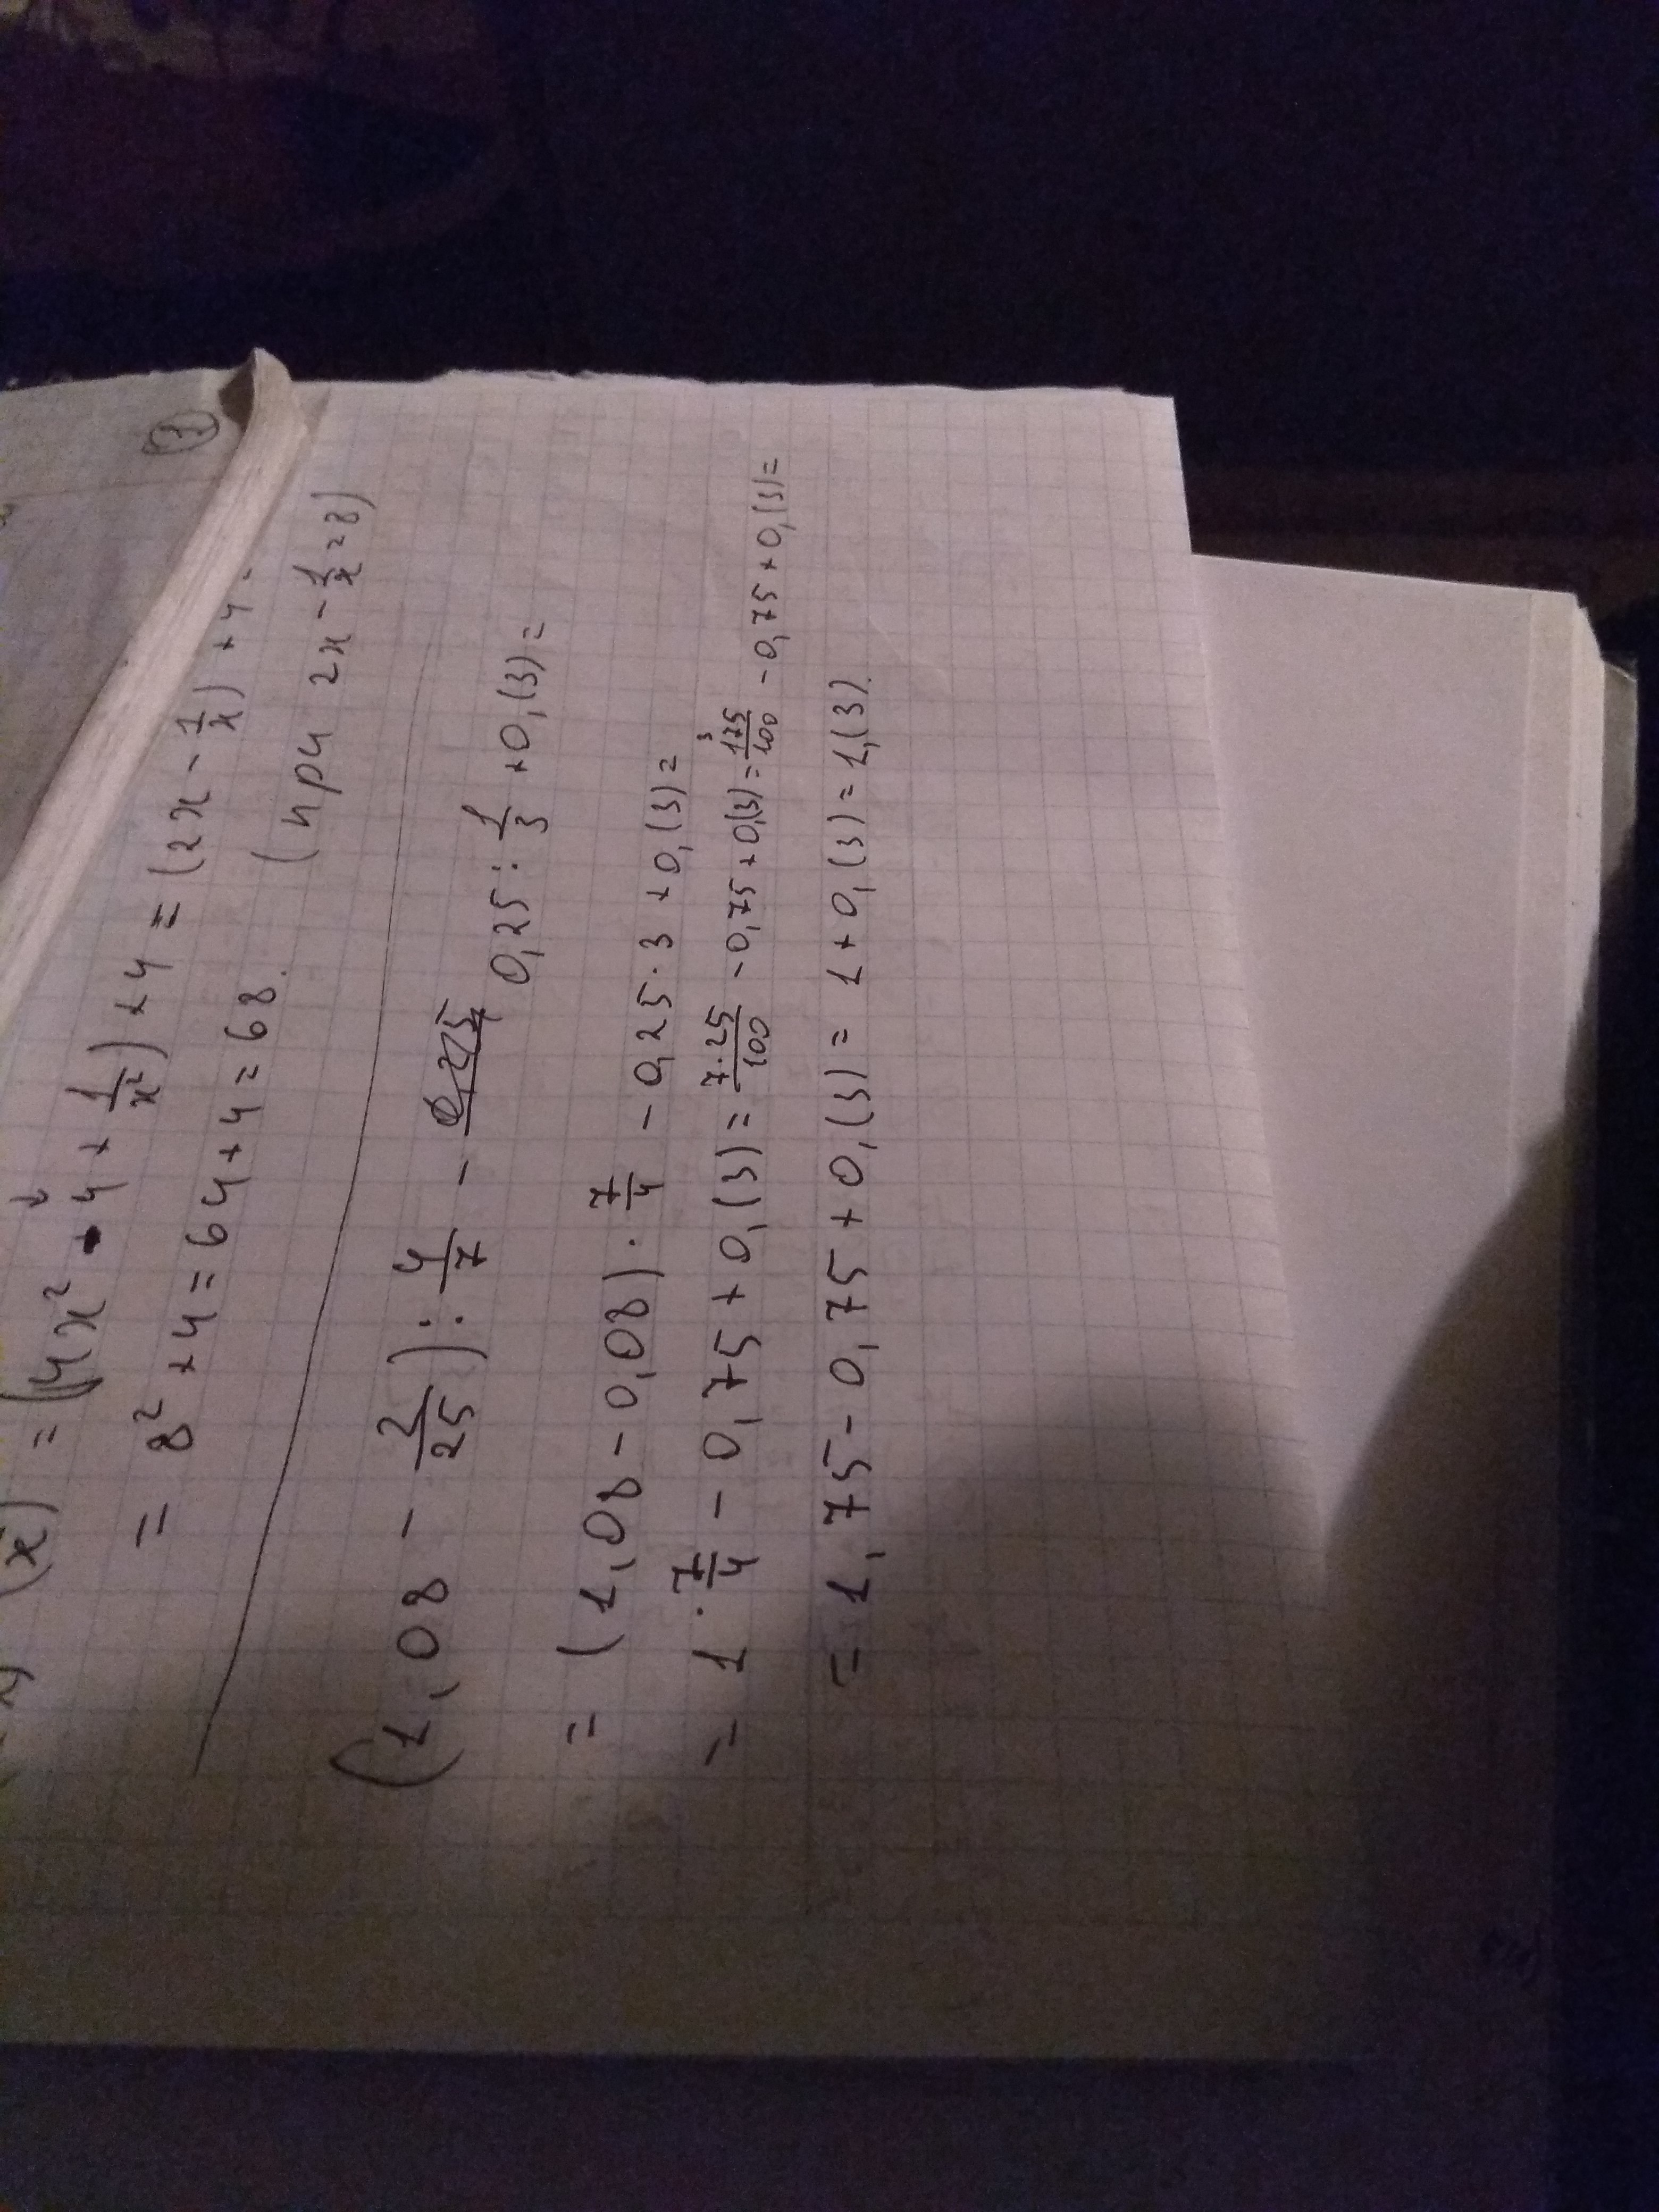 (7)
(x) = (4x² + 4 + 1/x²) + 4 = (2x - 1/x) + 4
= 8² + 4 = 64 + 4 = 68.
(при 2x - 1/x = 8)
(1,08 - 2/25) : 4/7 - 0,25 : 1/3 + 0,(3) =
= (1,08 - 0,08) · 7/4 - 0,25 · 3 + 0,(3) =
= 1 · 7/4 - 0,75 + 0,(3) = 7·25/100 - 0,75 + 0,(3) = 175/100 - 0,75 + 0,(3) =
= 1,75 - 0,75 + 0,(3) = 1 + 0,(3) = 1,(3).